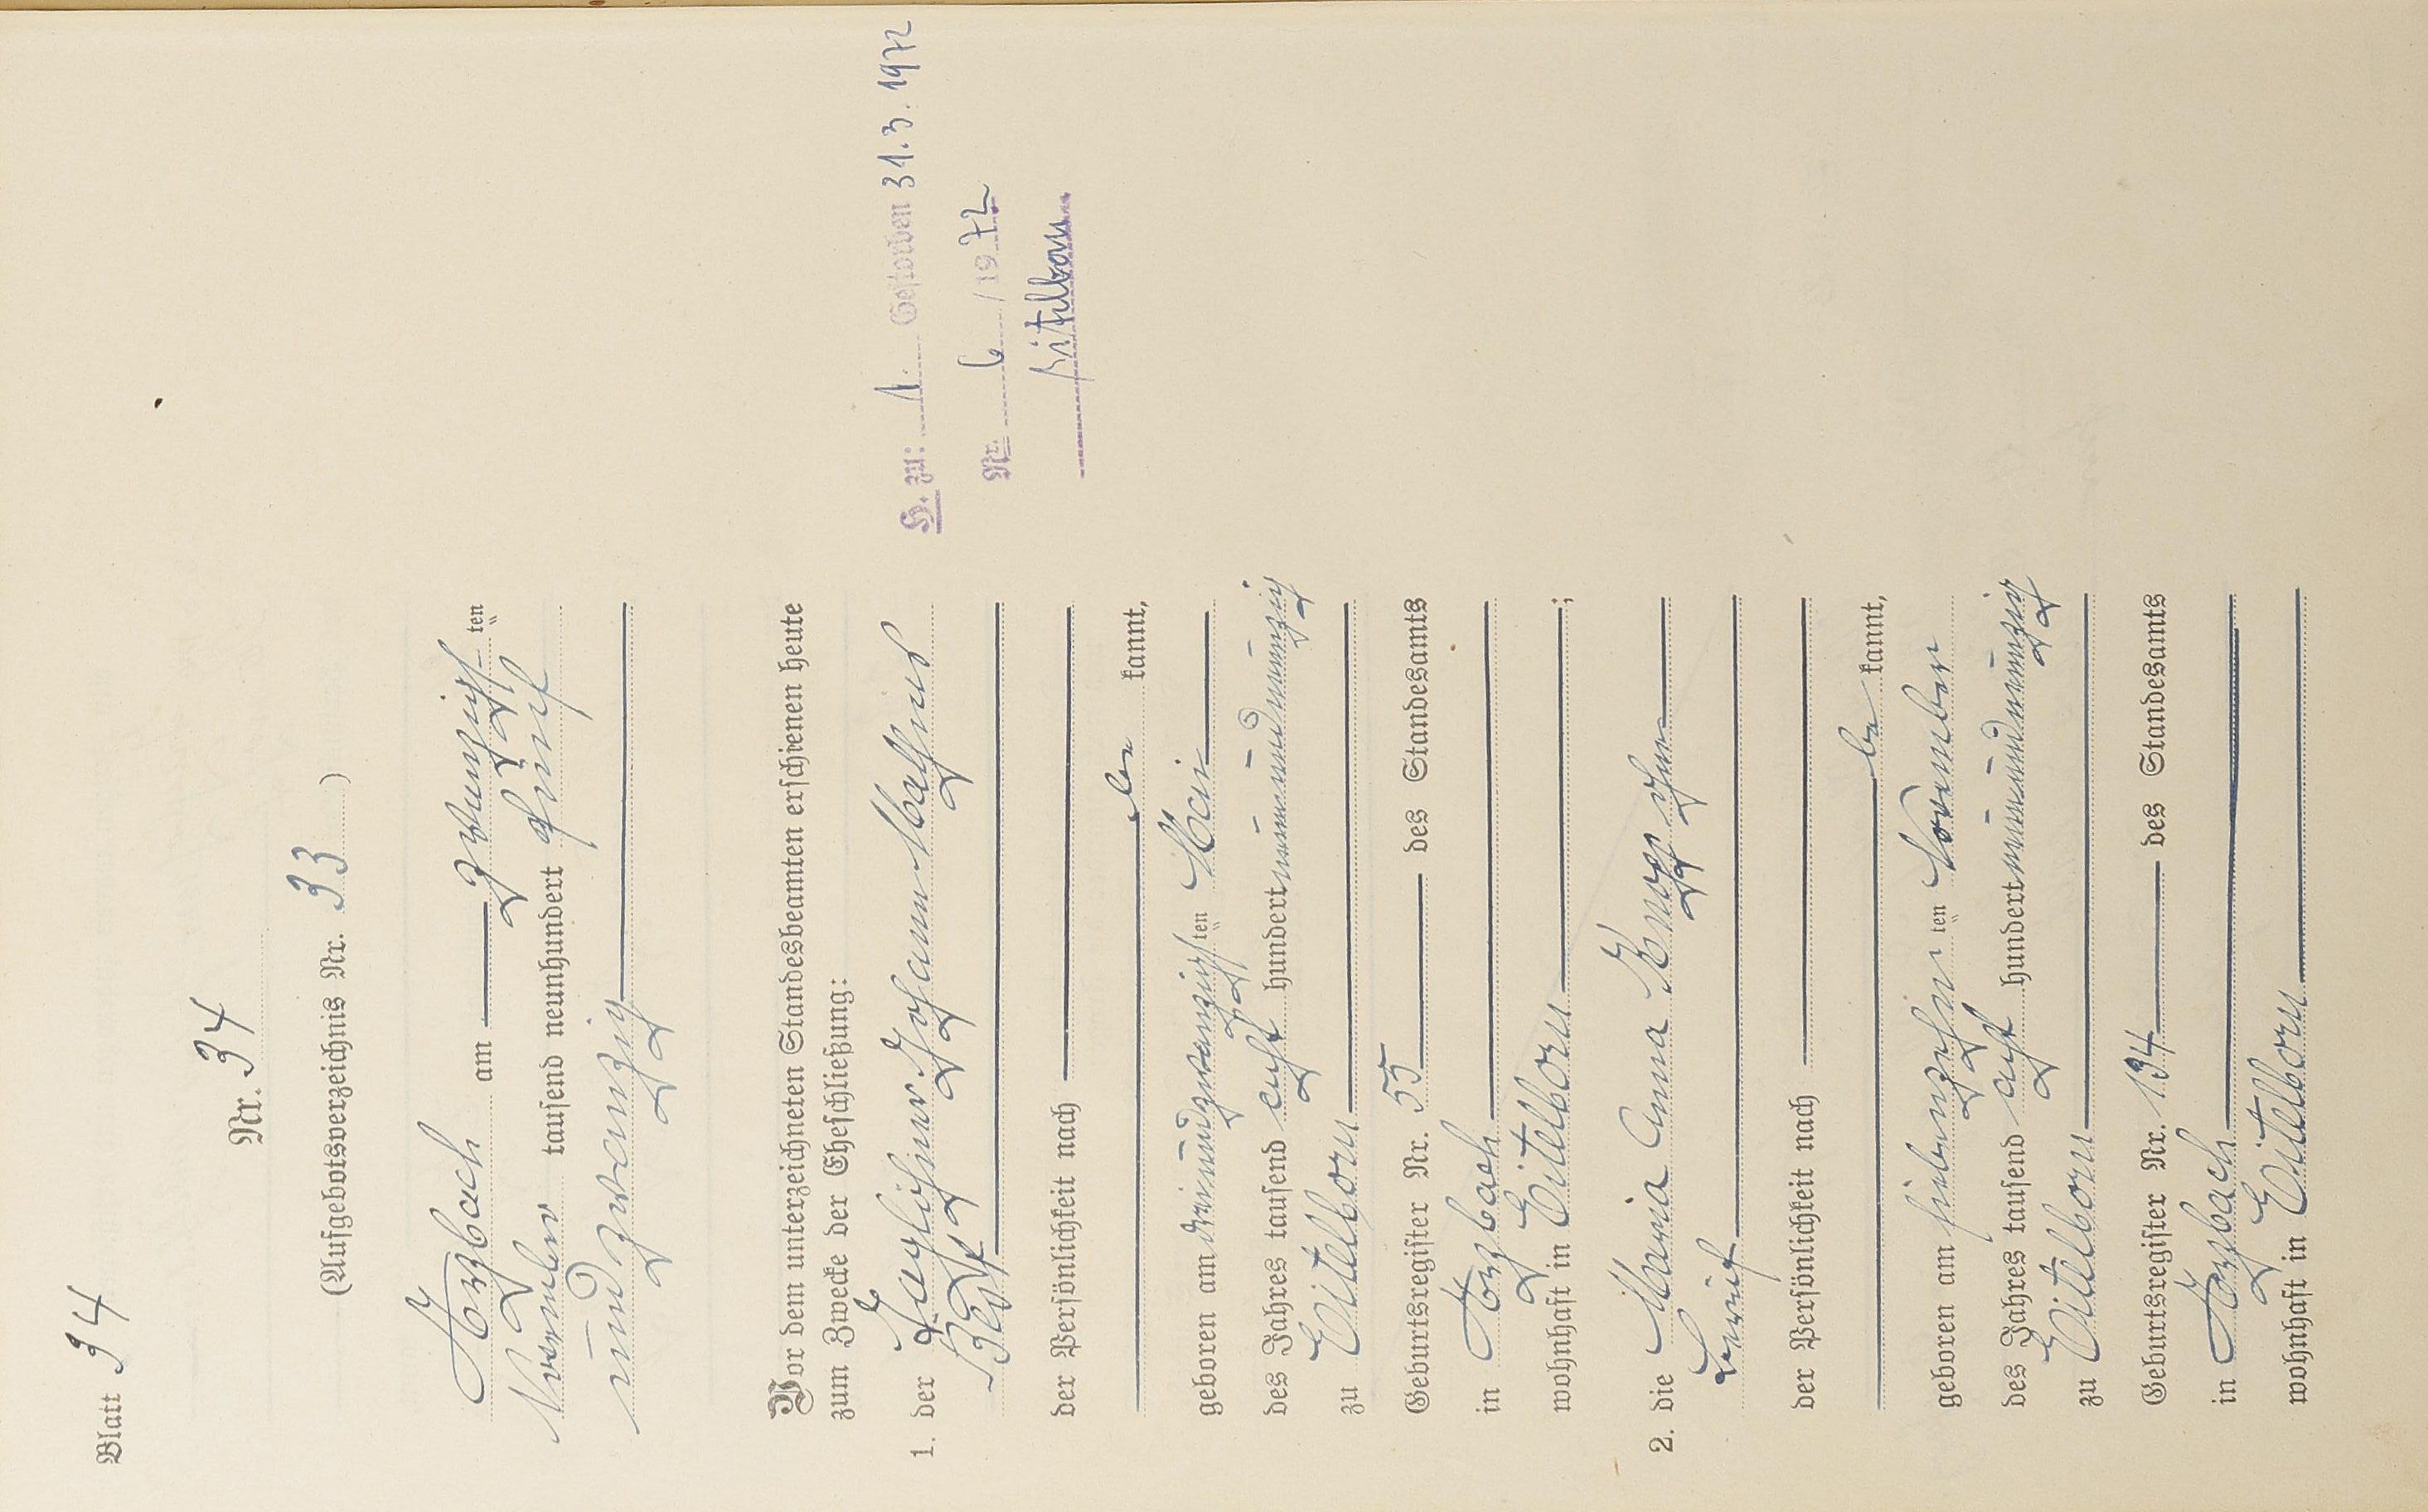 Blatt 34
Nr. 34
(Aufgebotsverzeichnis Nr. 33)
Arzbach am zwanzigsten
November tausend neunhundert fünf
und zwanzig
Vor dem unterzeichneten Standesbeamten erschienen heute
zum Zwecke der Eheschließung:
1. der Taglöhner Johann Mathias
der Persönlichkeit nach
be kannt,
geboren am dreiundzwanzigsten Mai
des Jahres tausend acht hundert neunundneunzig
zu Eitelborn
Geburtsregister Nr. 55 des Standesamts
in Arzbach
wohnhaft in Eitelborn;
2. die Maria Anna Knopp ohne
Beruf
der Persönlichkeit nach
be kannt,
geboren am siebenzehnten November
des Jahres tausend acht hundert neunundneunzig
zu Eitelborn
Geburtsregister Nr. 134 des Standesamts
in Arzbach
wohnhaft in Eitelborn
H. zu: 1. Gestorben 31.3.1972
Nr. 6 /1972
Eitelborn